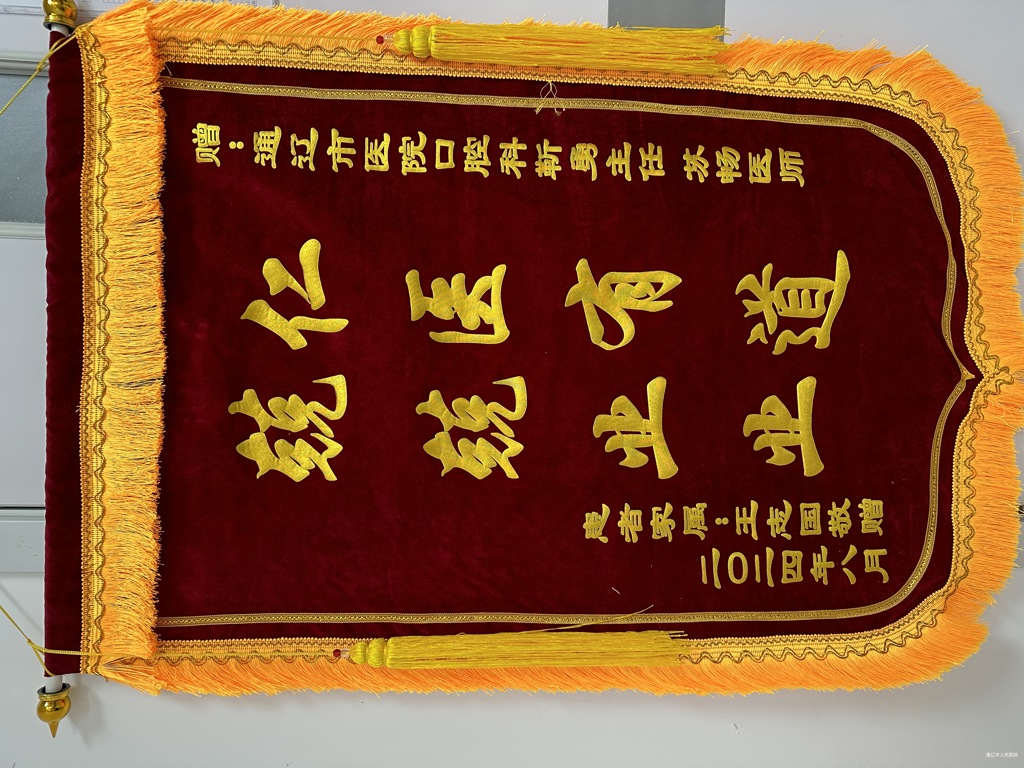 赠：通辽市医院口腔科靳勇主任 苏畅医师
仁医有道
兢兢业业
患者家属：王志国敬赠
二〇二四年八月
通辽市人民医院